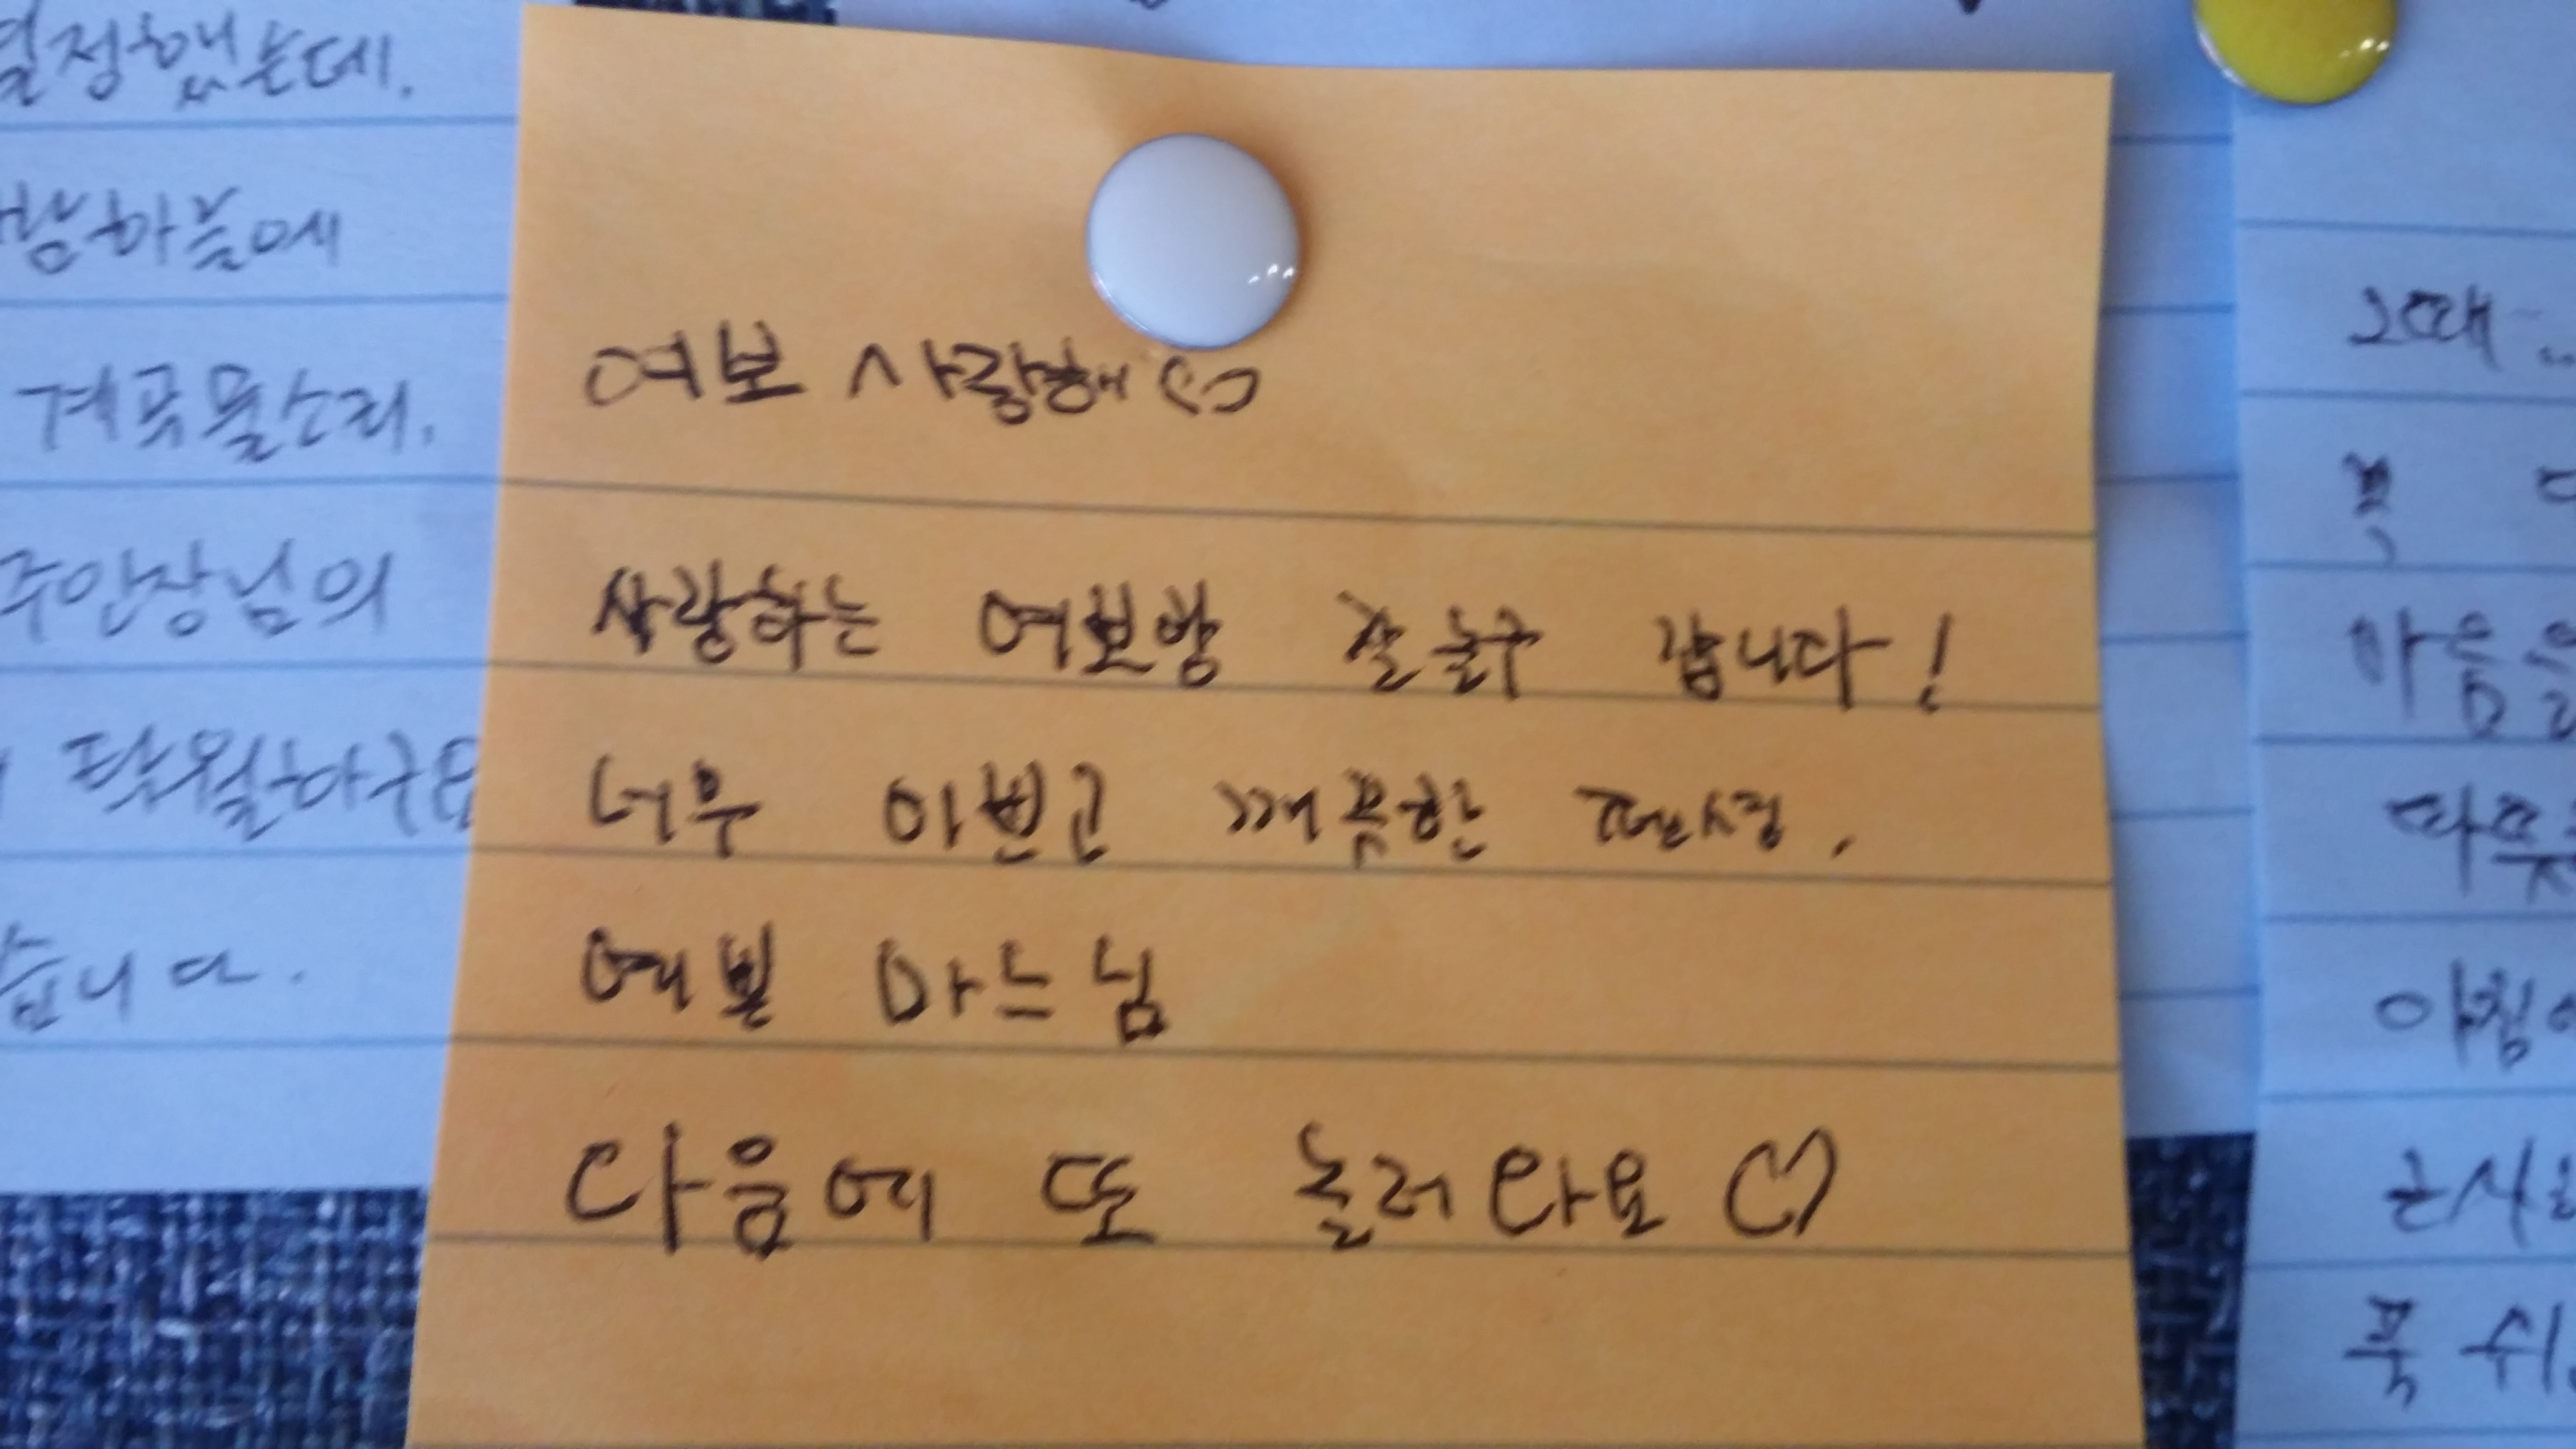 결정했는데.
하늘에
계곡물소리.
주인장님의
탁월하구요
습니다.
여보 사랑해♡
사랑하는 여보랑 잘 놀구 갑니다!
너무 이쁘고 깨끗한 펜션.
예쁜 마느님
다음에 또 놀러 와요♡
그때..
푹
마음을
따뜻
아침
푹 쉬